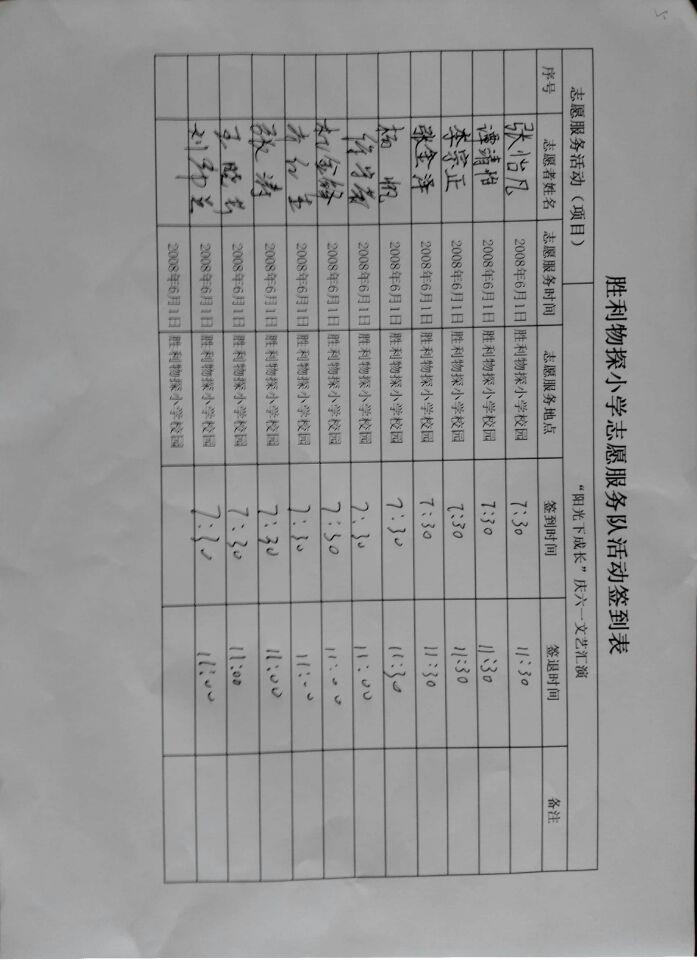 胜利物探小学志愿服务队活动签到表
志愿服务活动（项目） “阳光下成长”庆六一文艺汇演
序号 志愿者姓名 志愿服务时间 志愿服务地点 签到时间 签退时间 备注
张怡凡 2008年6月1日 胜利物探小学校园 7:30 11:30
2008年6月1日 胜利物探小学校园 7:30 11:30
李宗正 2008年6月1日 胜利物探小学校园 7:30 11:30
张金泽 2008年6月1日 胜利物探小学校园 7:30 11:30
杨帆 2008年6月1日 胜利物探小学校园 7:30 11:30
2008年6月1日 胜利物探小学校园 7:30 11:00
2008年6月1日 胜利物探小学校园 7:30 11:00
2008年6月1日 胜利物探小学校园 7:30 11:00
张涛 2008年6月1日 胜利物探小学校园 7:30 11:00
2008年6月1日 胜利物探小学校园 7:30 11:00
2008年6月1日 胜利物探小学校园 7:30 11:00
2008年6月1日 胜利物探小学校园